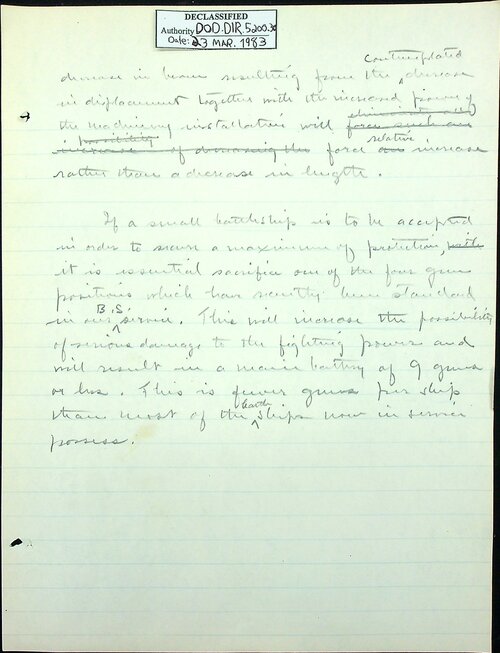 DECLASSIFIED
Authority DOD.DIR.5200.30
Date: 23 MAR. 1983
contemplated
decrease in beam resulting from the ^ decrease
in displacement together with the increased power of
the machinery installation will force such an
possibility relative
increase of decreasing the force an increase
rather than a decrease in length.
If a small battleship is to be accepted
in order to secure a maximum of protection, with
it is essential sacrifice one of the four gun
positions which have recently been standard
B.S
in our ^ service. This will increase the possibility
of serious damage to the fighting power and
will result in a main battery of 9 guns
or less. This is fewer guns per ship
battle
than most of the ^ ships now in service
possess.